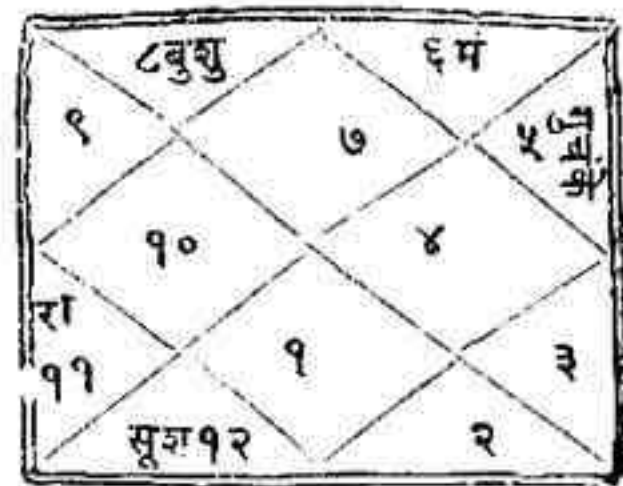 ८बुशु
६मं
९
७
५
गुचंके
१०
४
रा
११
१
३
सूश१२
२